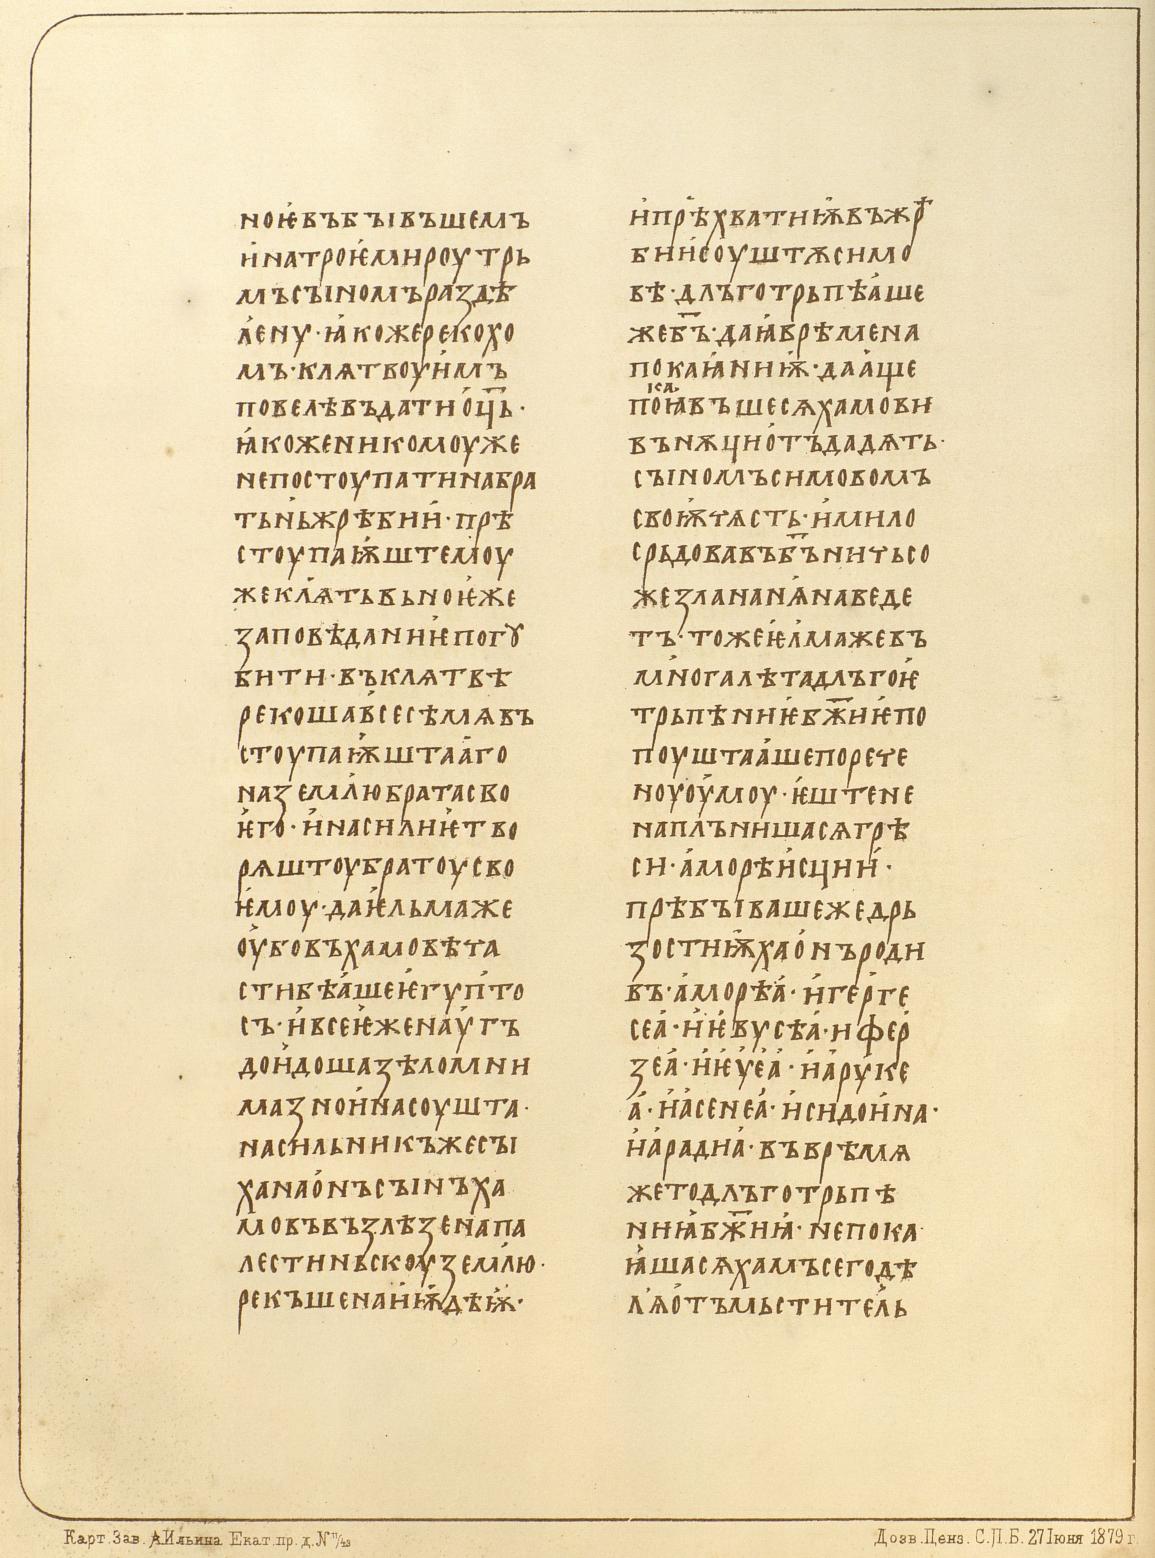 ноѥвъбꙑвъшемъ
инатроѥмироутрь
мъсꙑномъраздѣ
лену·ꙗкожерекохо
мъ·клѧтвоуимъ
повелѣвъдатиоц҃ь·
ꙗкоженикомоуже
непостоупатинабра
тьньжрѣбии·прѣ
стоупаѭштемоу
жеклѧтьвьноѥже
заповѣданиѥпогꙋ
бити·въклѧтвѣ
рекошавсесѣмѧвъ
стоупаѭштааго
наземлюбратасво
ѥго·инасилиѥтво
рѧштоубратоусво
ѥмоу·даѥльмаже
оубовъхамовѣта
стивѣашеѥгупто
съ·ивсеѥженаугъ
доидошазѣломни
мазноинасоушта·
насильникъжесꙑ
ханаонъсꙑнъха
мовъвъзлѣзенапа
лестиньскоуземлю·
рекъшенаиѭдѣѭ·
ипрѣхватиѭвъжр
биисоуштѫсимо
вѣ·длъготрьпѣаше
жеб҃ъ·даꙗврѣмена
покаꙗниѭ·дааще
ка
поꙗвъшесѧхамови
вънѫциотъдадѧть·
сꙑномъсимовомъ
своѭтѧсть·имило
срьдовавъб҃ъничьсо
жезлананѧнаведе
тъ·тожеѥлмажевъ
многалѣтадлъгоѥ
трьпѣниѥбж҃иѥпо
поуштаашепорече
ноуоумоу·ѥштене
наплънишасѧгрѣ
си·аморѣисции·
прѣбꙑвашежедрь
зостиѭхаонъроди
въ·аморѣа·игерге
сеа·иѥвусѣа·ифер
зеа·иѥуеа·иаруке
а·иасенеа·исидоина·
иарадиа·въврѣмѧ
жетодлъготрьпѣ
ниꙗбж҃иꙗ·непока
ꙗшасѧхамъсегодѣ
лѧотъмьститель
Карт. Зав. А.Ильина Екат.пр.д.№ 11/43
Дозв.Ценз. С.П.Б. 27 Iюня 1879 г.